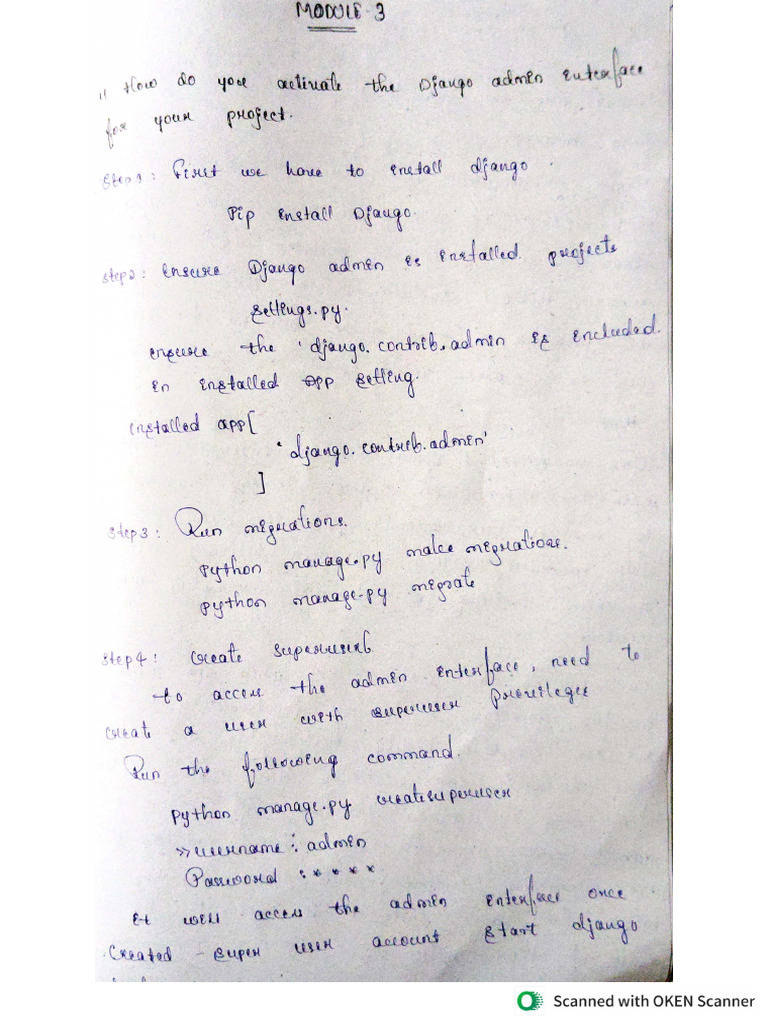 MODULE-3
1) How do you activate the Django admin interface
for your project.
Step 1: First we have to install django.
Pip install Django.
Step2: ensure Django admin is installed projects
settings.py.
ensure the 'django.contrib.admin is included.
in installed app setting.
installed app[
'django.contrib.admin'
]
Step3: Run migrations.
Python manage.py make migrations.
Python manage.py migrate
Step4: create superuser.
to access the admin interface, need to
create a user with superuser privileges
Run the following command.
Python manage.py createsuperuser
>> username: admin
Password : * * * *
It will access the admin interface once
created super user account start django
Scanned with OKEN Scanner